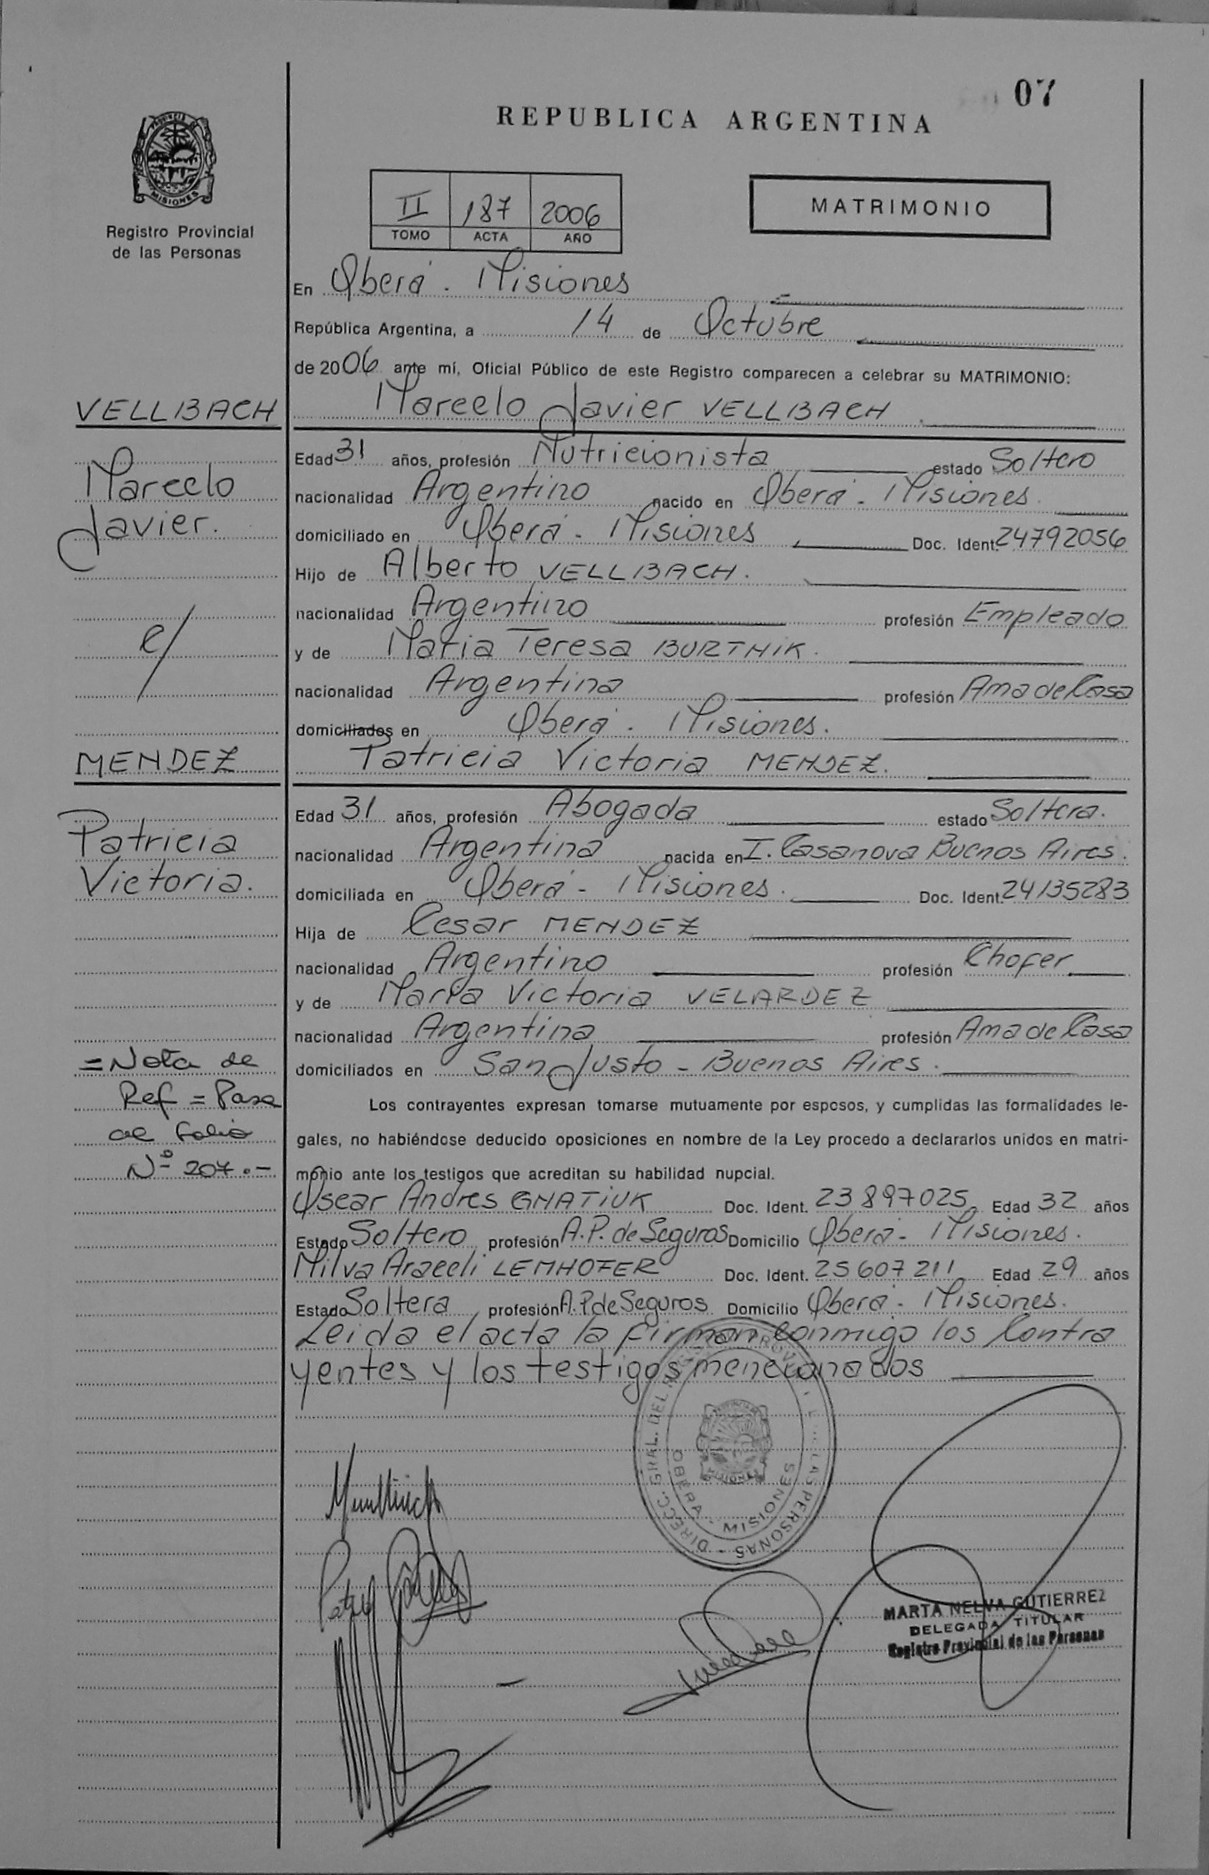 07
REPUBLICA ARGENTINA
MISIONES
Registro Provincial
de las Personas
II 187 2006
TOMO ACTA AÑO
MATRIMONIO
En Oberá - Misiones
República Argentina, a 14 de Octubre
de 2006 ante mí, Oficial Público de este Registro comparecen a celebrar su MATRIMONIO:
VELLBACH
Marcelo Javier VELLBACH
Marcelo
Javier.
Edad 31 años, profesión Nutricionista estado Soltero
nacionalidad Argentino nacido en Oberá - Misiones.
domiciliado en Oberá - Misiones Doc. Ident. 24792056
Hijo de Alberto VELLBACH.
nacionalidad Argentino profesión Empleado
c/
y de Maria Teresa BURTNIK.
nacionalidad Argentina profesión Ama de Casa
domiciliados en Oberá - Misiones.
MENDEZ
Patricia Victoria MENDEZ.
Patricia
Victoria.
Edad 31 años, profesión Abogada estado Soltera.
nacionalidad Argentina nacida en I. Casanova Buenos Aires.
domiciliada en Oberá - Misiones. Doc. Ident. 24135283
Hija de Cesar MENDEZ
nacionalidad Argentino profesión Chofer
y de Maria Victoria VELARDEZ
nacionalidad Argentina profesión Ama de Casa
domiciliados en San Justo - Buenos Aires.
= Nota de
Ref = Pasa
al folio
Nº 207.-
Los contrayentes expresan tomarse mutuamente por esposos, y cumplidas las formalidades le-
gales, no habiéndose deducido oposiciones en nombre de la Ley procedo a declararlos unidos en matri-
monio ante los testigos que acreditan su habilidad nupcial.
Oscar Andres GNATIUK Doc. Ident. 23897025 Edad 32 años
Estado Soltero profesión A.P. de Seguros Domicilio Oberá - Misiones.
Milva Araceli LEMHOFER Doc. Ident. 25607211 Edad 29 años
Estado Soltera profesión A.P de Seguros Domicilio Oberá - Misiones.
Leida el acta la firman conmigo los Contra
yentes y los testigos mencionados
DIRECC. GRAL. DEL REGISTRO PROVINCIAL DE LAS PERSONAS
OBERA - MISIONES
MARTA NELVA GUTIERREZ
DELEGADA TITULAR
Registro Provincial de las Personas